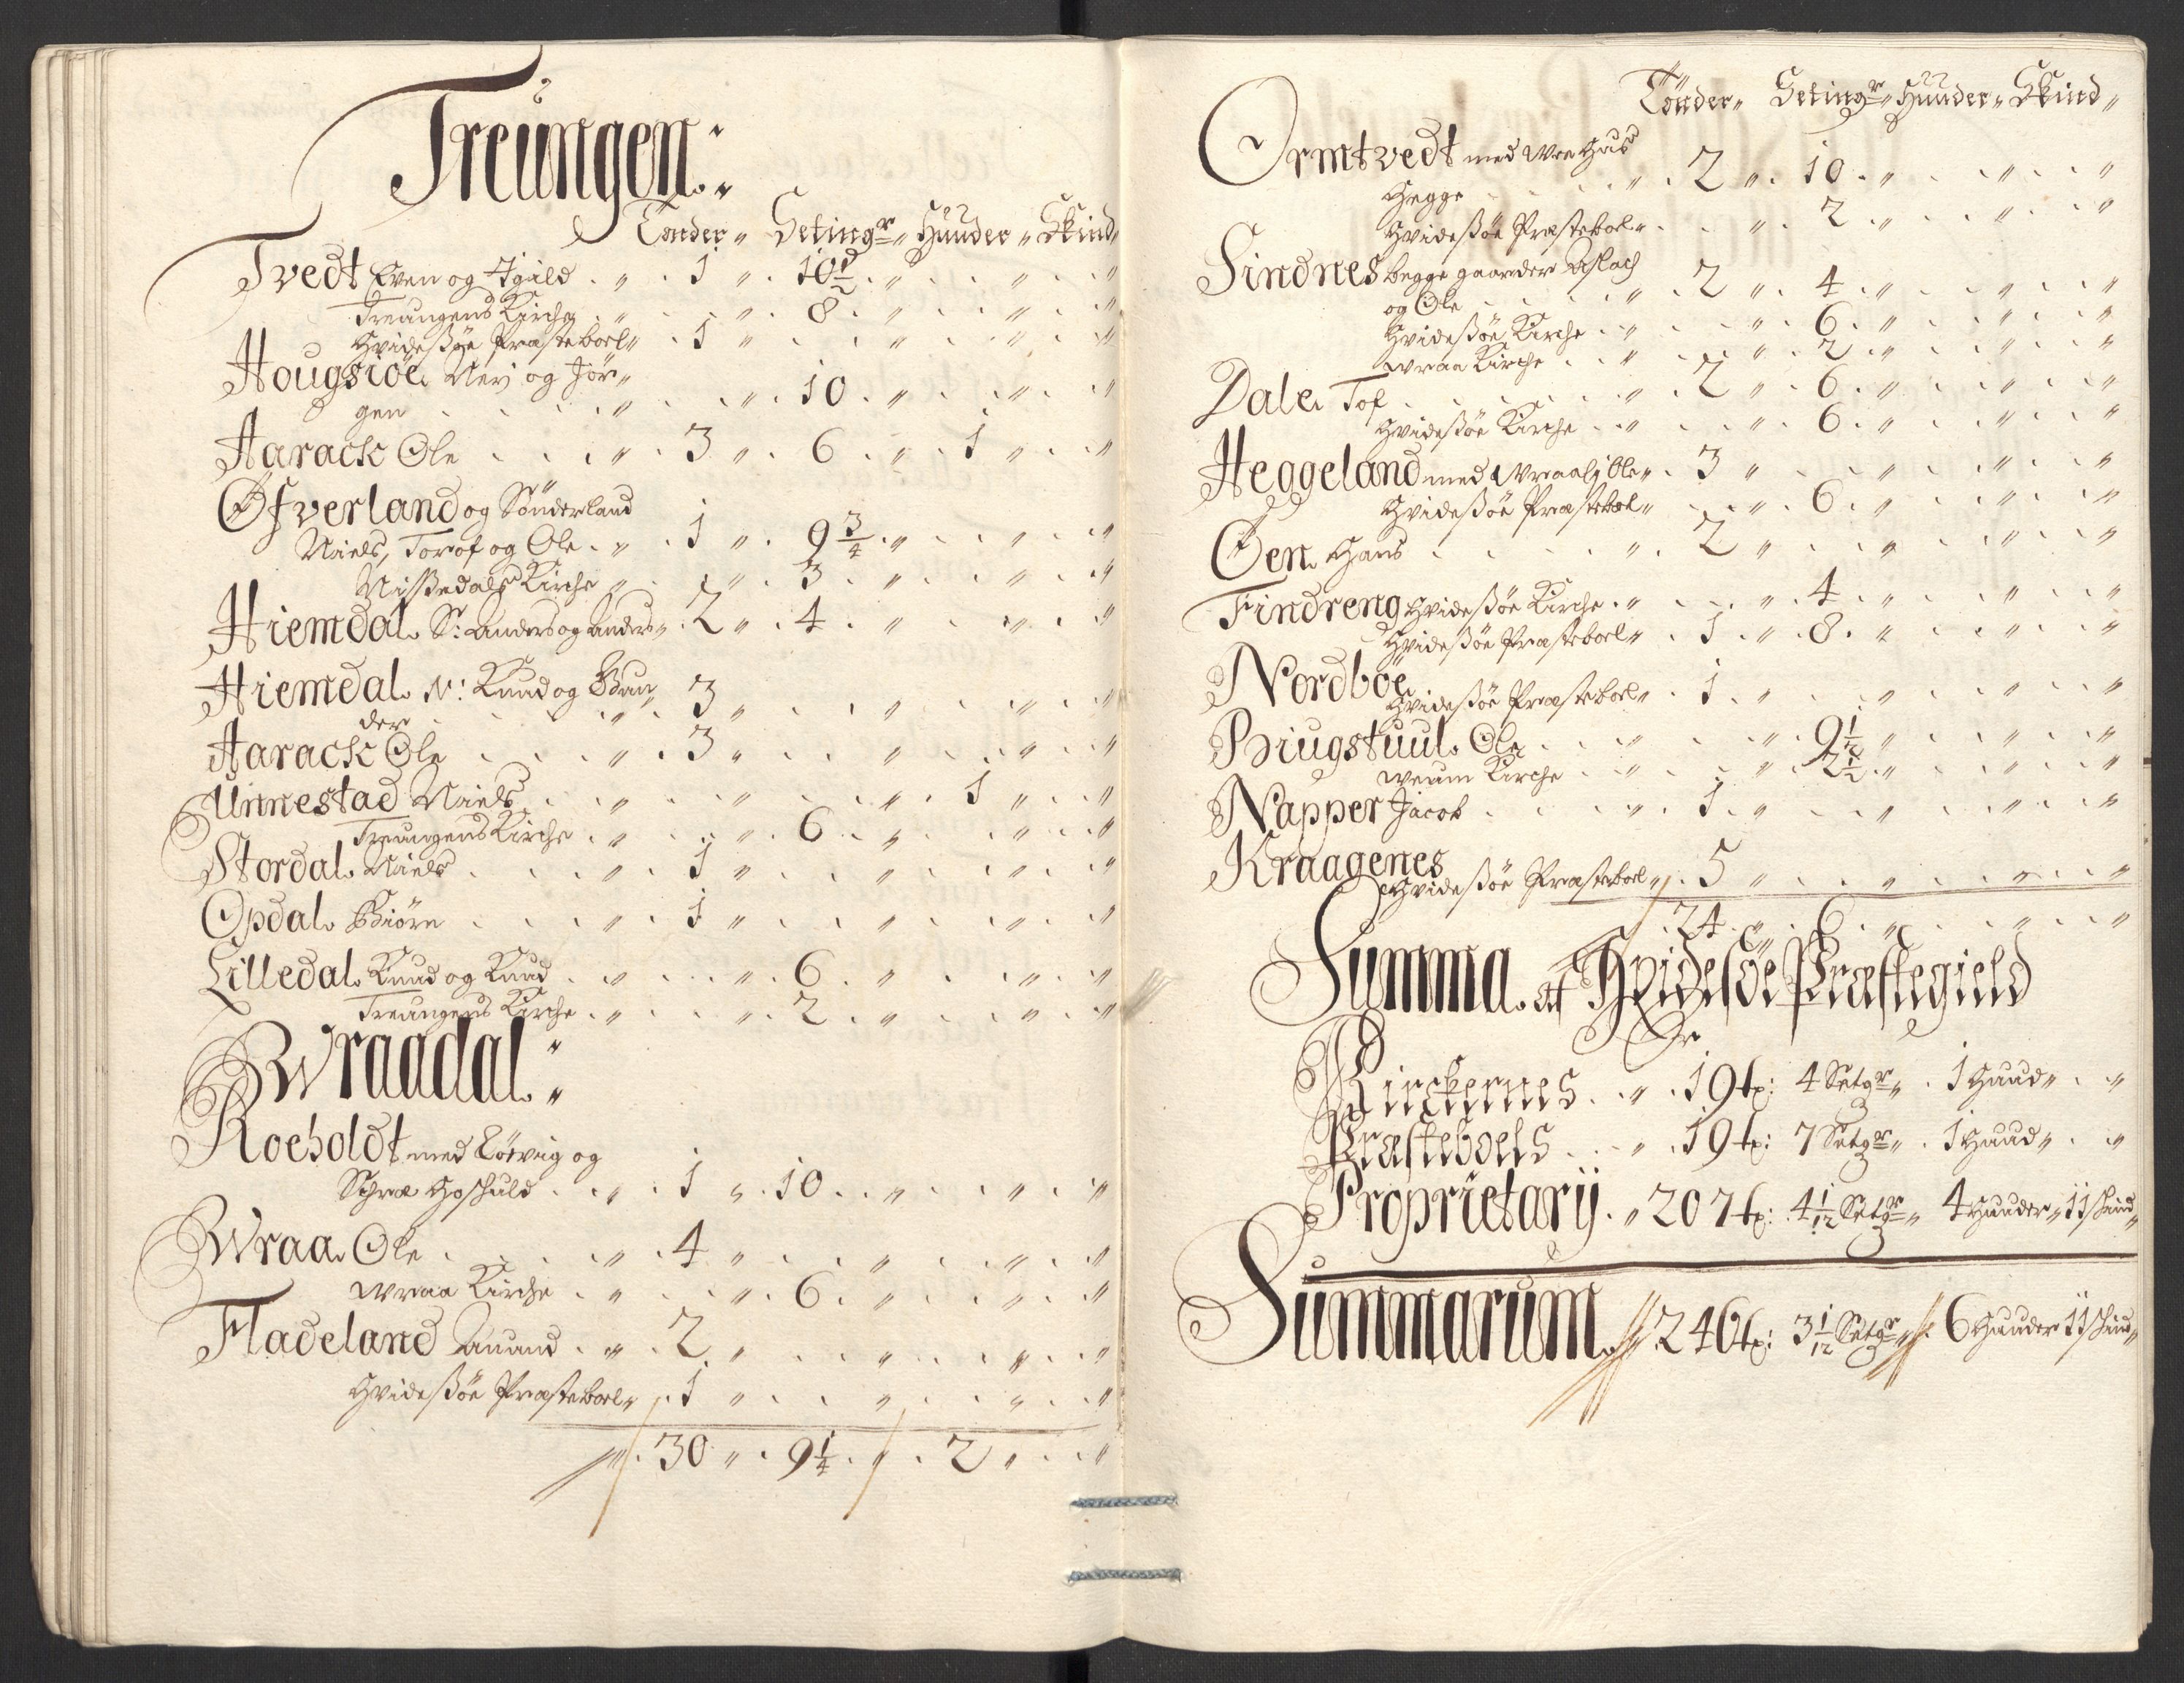 Treungen:
Tønder „ Setingr „ Huuder „ Skind
Tvedt Even og Igild . „ . 1 „ . 10½ . „ . . „ . . „
Treungens Kirche . „ . . „ . 8 . „ . . „ . . „
Hvidesøe Præsteboel „ . 1 „ . . „ . . „ . . „
Hougsiöe Nerj og Jör„
gen . . . . „ . . „ . 10 . „ . . „ . . „
Aarack Ole . . . „ . 3 „ . 6 . „ . 1 „ . . „
Øfverland og Sönderland
Niels, Torof og Ole . „ . 1 „ . 9¾ . „ . . „ . . „
Nissedals Kirche „ . . „ . 3 . „ . . „ . . „
Hiemdal S: Anders og Anders „ . 2 „ . 4 . „ . . „ . . „
Hiemdal N: Knud og Gun„
der . . . . „ . 3 „ . . „ . . „ . . „
Aarack Ole . . . „ . 3 „ . . „ . . „ . . „
Unnestad Niels . . „ . . „ . . „ . 1 „ . . „
Treungens Kirche . „ . . „ . 6 . „ . . „ . . „
Stordal Niels . . . „ . 1 „ . . „ . . „ . . „
Opdal Biörn . . . „ . 1 „ . . „ . . „ . . „
Lilledal Knud og Knud . „ . . „ . 6 . „ . . „ . . „
Treungens Kirche . „ . . „ . 2 . „ . . „ . . „
Wraadal:
Roeholdt med Lövig og
Schræ Hoschuld . . „ . 1 „ . 10 . „ . . „ . . „
Wraa Ole . . . „ . 4 „ . . „ . . „ . . „
Wraa Kirche . „ . . „ . 6 . „ . . „ . . „
Fladeland Aanund . „ . 2 „ . . „ . . „ . . „
Hvidesøe Præsteboel „ . 1 „ . . „ . . „ . . „
„ . 30 „ . 9¼ . „ . 2 „ . . „
Tønder „ Setingr „ Huuder „ Skind „
Ormtvedt med Wre Huus
Hegge . . . . „ . 2 „ . 10 . „ . . „ . . „
Hvidesøe Præsteboel „ . . „ . 2 . „ . . „ . . „
Sindnes begge gaarder Aslach
og Ole . . . . „ . 2 „ . 4 . „ . . „ . . „
Hvidesøe Kirche . „ . . „ . 6 . „ . . „ . . „
Wraa Kirche . . „ . . „ . 2 . „ . . „ . . „
Dale Tof . . . . „ . 2 „ . 6 . „ . . „ . . „
Hvidesøe Kirche . „ . . „ . 6 . „ . . „ . . „
Heggeland med Wraalj Ole „ . 3 „ . . „ . . „ . . „
Hvidesøe Præsteboel „ . . „ . 6 . „ . . „ . . „
Øen Hans . . . . „ . 2 „ . . „ . . „ . . „
Findreng Hvidesøe Kirche . „ . . „ . 4 . „ . . „ . . „
Hvidesøe Præsteboel „ . 1 . „ . 8 . „ . . „ . . „
Nordböe
Hvidesøe Præsteboel „ . 1 . „ . . „ . . „ . . „
Biugstuul Ole . . . „ . . „ . 9½ „ . . „ . . „
Weum Kirche . „ . . „ . 2½ . „ . . „ . . „
Napper Jacob . . . „ . 1 . „ . . „ . . „ . . „
Kraagenes
Hvidesøe Præsteboel „ . 5 „ . . „ . . „ . . „
. 24 . „ . 6 . „ . . „ . . „
Summa af Hvidesöe Præstegield
Er
Kirckernes . „ . 19 t: 4 Setgr „ . 1 Huud „ . „
Præsteboels . . „ . 19 t: 7 Setgr „ . 1 Huud „ . „
Proprietarij . „ 207 t: 4 1/12 Setgr „ 4 Huuder „ 11 skind „
Summarum „ 246 t: 3 1/12 Setgr „ . 6 Huuder 11 skind „